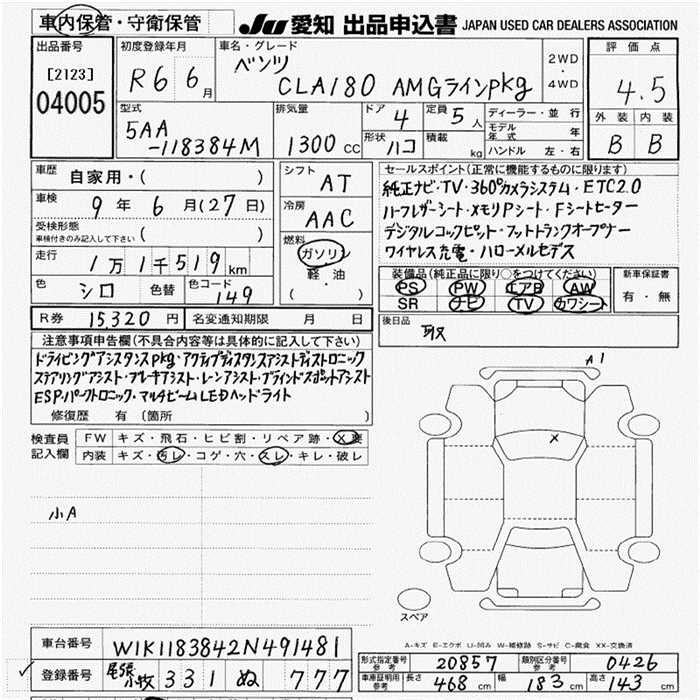 車内保管・守衛保管
JU 愛知 出品申込書 JAPAN USED CAR DEALERS ASSOCIATION
出品番号
[2123]
04005
初度登録年月
R6 6月
車名・グレード
ベンツ
CLA180 AMGラインPkg
2WD
・
4WD
評価点
4.5
外装 内装
B B
型式
5AA
-118384M
排気量
1300 CC
ドア 4
定員 5人
形状 ハコ
積載 kg
ディーラー・並行
モデル年式 年
ハンドル 左・右
車歴 自家用・( )
車検 9年 6月(27日)
受検形態
車検付きのみ記入して下さい ( )
走行 1万1千519km
色 シロ 色替 色コード 149
シフト AT
冷房 AAC
燃料
ガソリン
軽油
( )
セールスポイント(正常に機能するものに限ります)
純正ナビ・TV・360°カメラシステム・ETC2.0
ハーフレザーシート・メモリPシート・Fシートヒーター
デジタルコックピット・フットトランクオープナー
ワイヤレス充電・ハローメルセデス
装備品(純正品に限り○をつけてください)
PS PW エアB AW
SR ナビ TV カワシート
新車保証書
有・無
R券 15,320円 名変通知期限 月 日
後日品
取
注意事項申告欄(不具合内容等は具体的に記入して下さい)
ドライビングアシスタンスPkg・アクティブディスタンスアシストディストロニック
ステアリングアシスト・ブレーキアシスト・レーンアシスト・ブラインドスポットアシスト
ESP・パークトロニック・マルチビームLEDヘッドライト
修復歴 有(箇所 )
検査員
記入欄
FW キズ・飛石・ヒビ割・リペア跡・X要
内装 キズ・汚レ・コゲ・穴・スレ・キレ・破レ
小A
A1
X
スペア
A-キズ E-エクボ U-凹み W-補修跡 S-サビ C-腐食 XX-交換済
車台番号 W1K1183842N491481
登録番号 尾張小牧 331 ぬ 777
型式指定番号 参考 20857 類別区分番号 参考 0426
車庫証明用 参考 長さ 468cm 幅 183cm 高さ 143cm